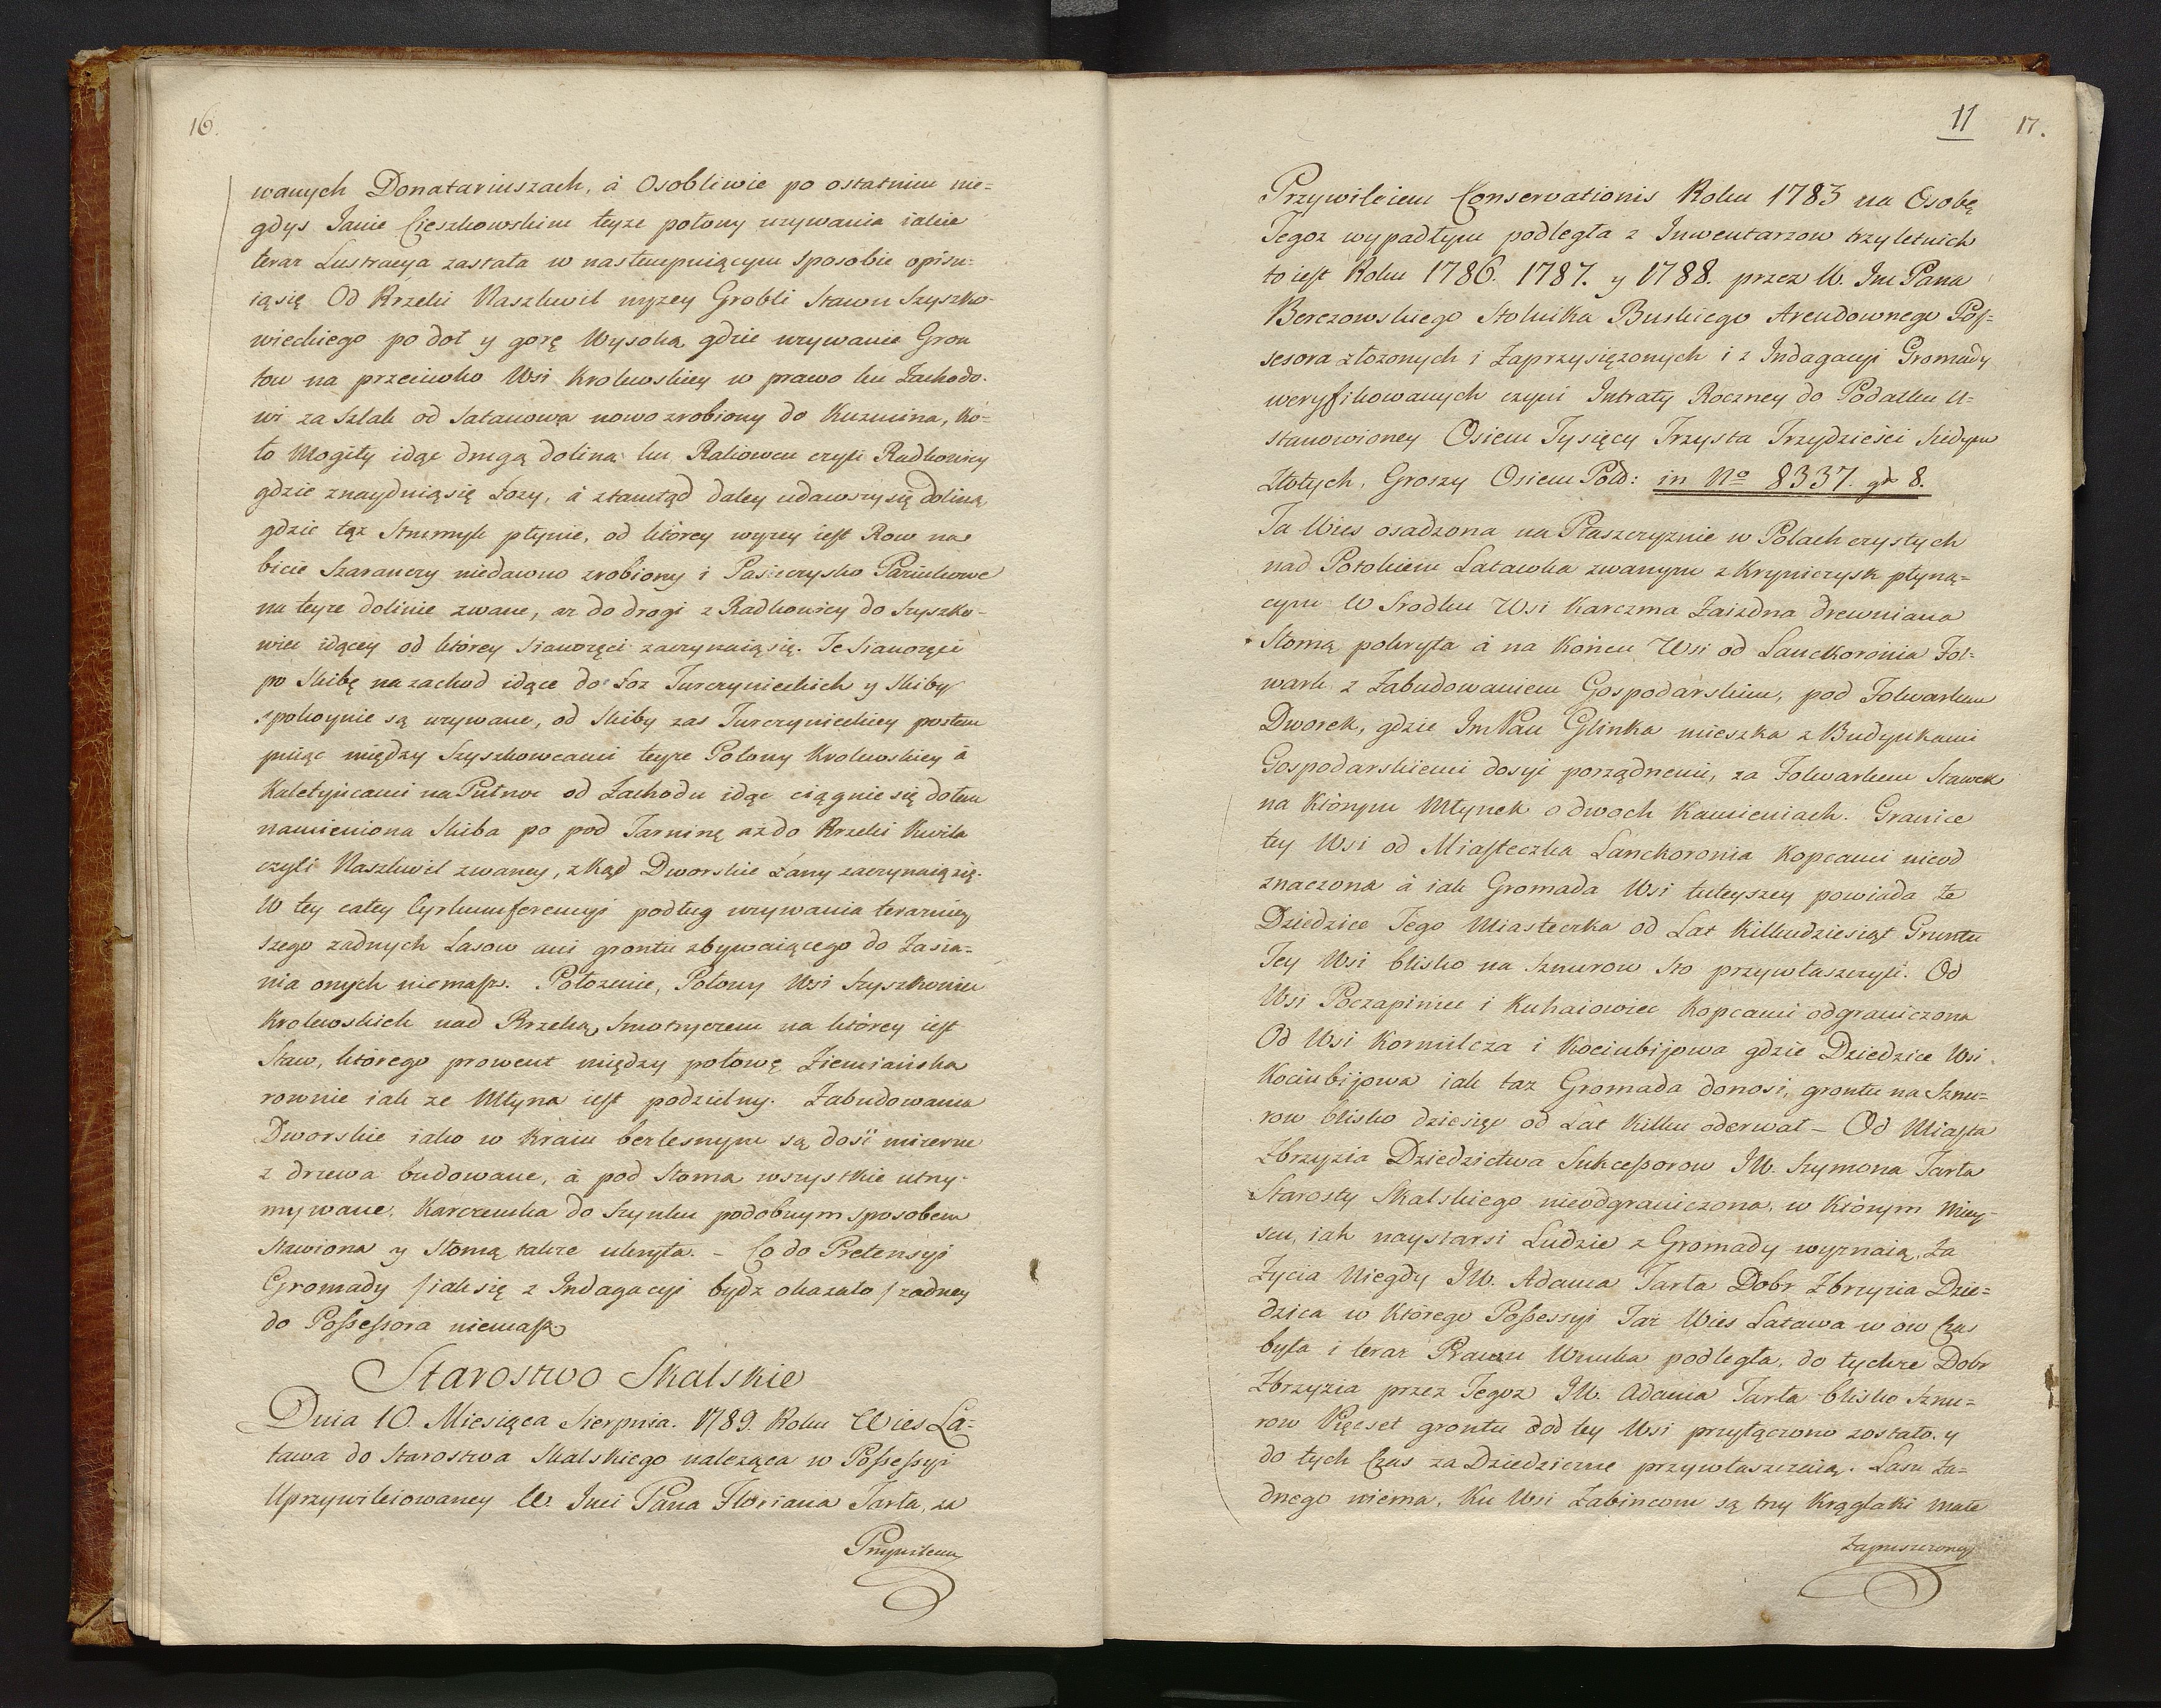 16.
wanych Donatariuszach, à Osobliwie po ostatnim nie=
gdys Janie Cieszkowskim teyze połowy uzywania iakie
teraz Lustracya zastała w nastempuiącym sposobie opisu=
ią się Od Rzeki Naszkwil nizey Grobli Stawu Szyszko-
wieckiego po doł y gorę Wysoką gdzie uzywanie Gron
tow na przeciwko Wsi Krolewskiey w prawo ku Zachodo-
wi za Szlak od Satanowa nowo zrobiony do Kuzmina, ko=
ło Mogiły idąc drugą doliną ku Rakowcu czyli Radkowicy
gdzie znayduią się Łozy, à ztamtąd daley udawszy się doliną
gdzie taz Strumyk płynie, od ktorey wyzey iest Row na
bicie Szaranczy niedawno zrobiony i Pasieczysko Paziukowe
na teyze dolinie zwane, az do drogi z Radkowicy do Szyszko-
wiec idącey od ktorey Sianozęci zaczynaią się. Te Sianozęci
po Skibę na zachod idące do Łoz Turczynieckich y Skiby
spokoynie są uzywane, od Skiby zas Turczynieckiey postem
puiąc między Szyszkowcami teyze Połowy Krolewskiey à
Kaletyńcami na Putnoc od Zachodu idąc ciągnie się dołem
namieniona Skiba po pod Tarninę aż do Rzeki Kwila
czyli Naszkwil zwaney, zkąd Dworskie Łany zaczynaią się.
W tey całey Cyrkumferencyi podług uzywania teraznie
szego zadnych Lasow ani grontu zbywaiącego do Zasia=
nia onych niemasz. Położenie, Połowy Wsi Szyszkowiec
Krolewskich nad Rzeką Smotryczem na ktorey iest
Staw, ktorego prowent między połowę Ziemianska
rownie iak ze Młyna iest podzielny. Zabudowania
Dworskie iako w Kraiu bezlesnym są dosi mizerne
z drzewa budowane, à pod Słoma wszystkie utrzy-
mywane. Karczemka do Szynku podobnym sposobem
stawiona y Słomą takze ukryta. - Co do Pretensyi
Gromady /iak się z Indagacyi bydz okazało/ zadney
do Possessora niemasz
Starostwo Skalskie
Dnia 10. Miesiąca Sierpnia. 1789. Roku Wies La=
tawa do Starostwa Skalskiego naleząca w Possessyi
Uprzywileiowaney W. Imci Pana Floriana Tarła, za
Przywileiem
11 17.
Przywileiem Conservationis Roku 1783 na Osobę
Tegoz wypadłym podległa z Inwentarzow trzyletnich
to iest Roku 1786. 1787. y 1788. przez W. Im Pana
Berezowskiego Stolnika Buskiego Arendownego Pos=
sesora złozonych i Zaprzysięzonych i z Indagacyi Gromady
weryfikowanych czyni Intraty Roczney do Podatku U=
stanowioney Osiem Tysięcy Trzysta Trzydzieści Siedym
Złotych, Groszy Osiem Pold: in No 8337. gr 8.
Ta Wies osadzona na Płaszczyznie w Polach czystych
nad Potokiem Latawka zwanym z Krynicyzsk płyną=
cym W Srodku Wsi Karczma Zaizdna drewniana
Słomą pokryta à na Końcu Wsi od Lanckoronia Fol=
wark z Zabudowaniem Gospodarskim, pod Folwarkiem
Dworek, gdzie Im Pan Glinka mieszka z Budynkami
Gospodarskiemi dosyć porządnemi, za Folwarkiem Stawek
na Którym Młynek o dwoch Kamieniach. Granice
tey Wsi od Miasteczka Lanckoronia Kopcami nieod
znaczona à iak Gromada Wsi tuteyszey powiada że
Dziedzice Tego Miasteczka od Lat Kilkudziesiąt Gruntu
Tey Wsi blisko na Sznurow Sto przywłaszczyli. Od
Wsi Poczapiniec i Kuhaiowiec Kopcami odgraniczona
Od Wsi Kormilcza i Kociubijowa gdzie Dziedzic Wsi
Kociubijowa iak taz Gromada donosi, grontu na Sznu=
row blisko dziesięc od Lat Kilku oderwał - Od Miasta
Zbrzyzia Dziedzictwa Sukcessorow IW. Szymona Tarła
Starosty Skalskiego nieodgraniczona, w Którym miey=
scu, iak naystarsi Ludzie z Gromady wyznaią, Za
Życia Niegdy IW. Adama Tarła Dobr Zbrzyzia Dzie=
dzica w Którego Possessyi Taz Wies Latawa w ów Czas
była i teraz Prawu Wnuka podległa, do tychze Dobr
Zbrzyzia przez Tegoz IW. Adama Tarła blisko Sznu=
row Pięcset grontu od tey Wsi przyłączono zostało. y
do tych Czas za Dziedziczne przywłaszczaią. Lasu Za=
dnego niema, Ku Wsi Zabincom są trzy Krąglaki małe
Zapuszczone